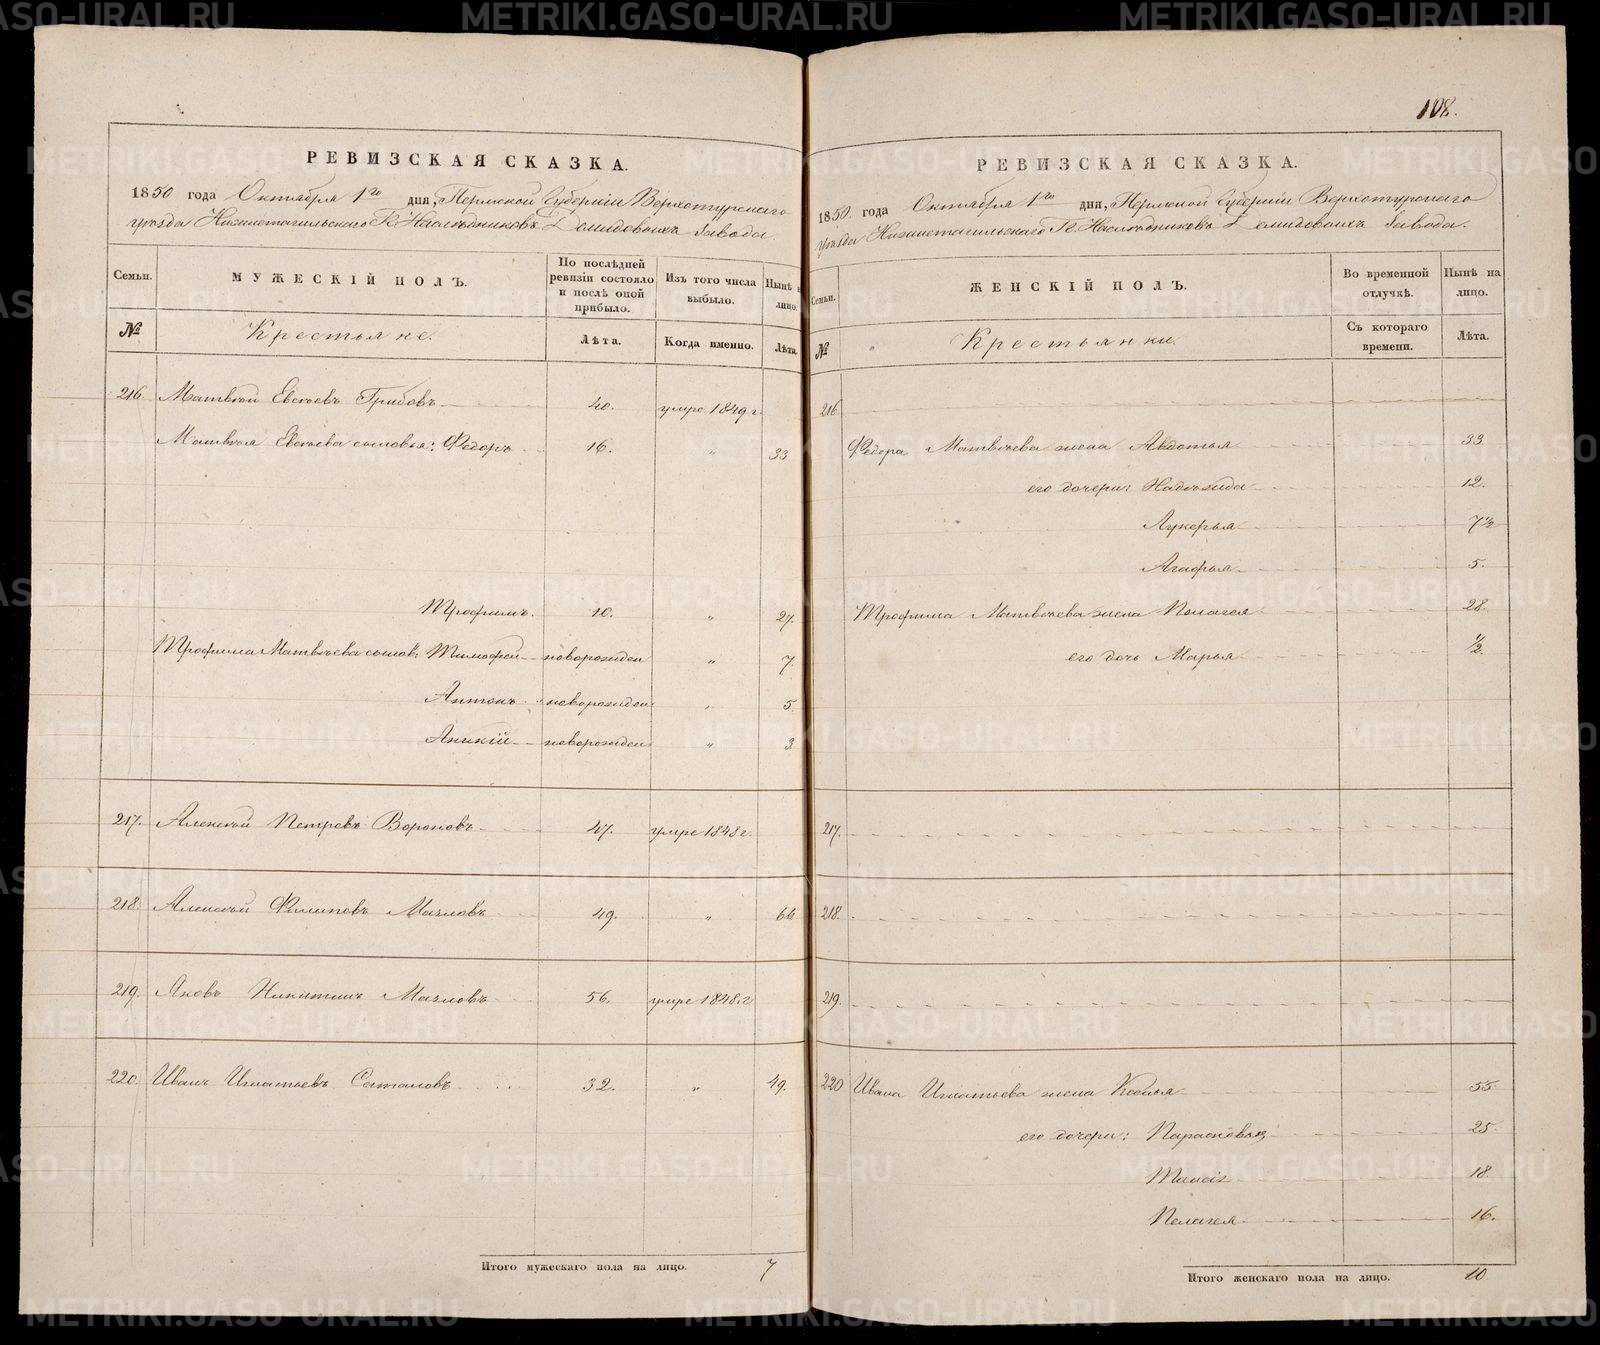 108.
РЕВИЗСКАЯ СКАЗКА.
1850 года Октября 1го дня, Пермской Губерніи Верхотурскаго
уѣзда Нижнетагильскаго Г. Наслѣдниковъ Демидовыхъ Завода.
Семьи. МУЖЕСКІЙ ПОЛЪ. По послѣдней ревизіи состояло и послѣ оной прибыло. Изъ того числа выбыло. Нынѣ на лицо.
№ Крестьяне. Лѣта. Когда именно. Лѣта.
216. Матвѣй Евсѣевъ Грибовъ 40. умре 1849 г.
Матвѣя Евсѣева сыновья: Ѳедоръ 16. " 33
Трофимъ. 10. " 27.
Трофима Матвѣева сынов: Тимофей новорожден " 7.
Антонъ новорожден " 5.
Аникій новорожден " 3
217. Алексѣй Петровъ Вороновъ 47. умре 1848 г.
218. Алексѣй Филиповъ Махловъ 49. " 66
219. Яковъ Никитинъ Махловъ 56. умре 1848. г
220. Иванъ Игнатьевъ Сотановъ 32. " 49.
Итого мужескаго пола на лицо. 7
РЕВИЗСКАЯ СКАЗКА.
1850. года Октября 1го дня, Пермской Губерніи Верхотурскаго
уѣзда Нижнетагильскаго Г. Наслѣдниковъ Демидовыхъ Завода.
Семьи. ЖЕНСКІЙ ПОЛЪ. Во временной отлучкѣ. Нынѣ на лицо.
№ Крестьянки. Съ котораго времени. Лѣта.
216.
Ѳедора Матвѣева жена Авдотья 33.
его дочери: Надежида 12.
Лукерья 7½
Агафья 5.
Трофима Матвѣева жена Пелагея 28.
его дочь Марья ½.
217.
218.
219.
220 Ивана Игнатьева жена Ксенья 55.
его дочери: Парасковья 25.
Таисія 18.
Пелагея 16.
Итого женскаго пола на лицо. 10
METRIKI.GASO-URAL.RU